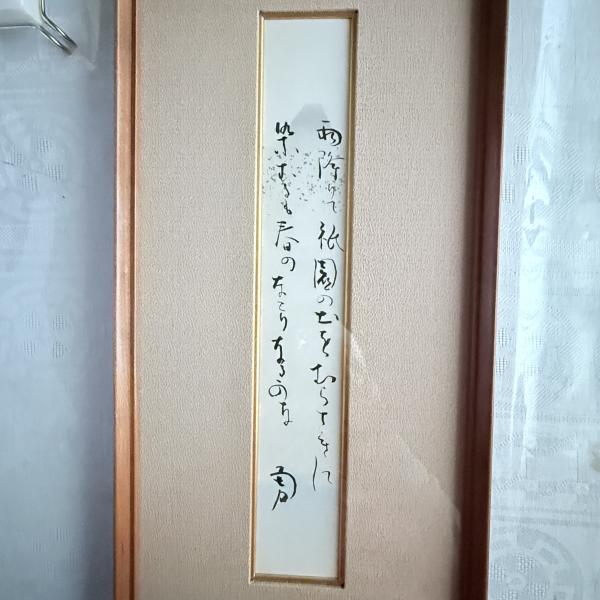 雨降りて祇園の土をむらさきに
染むるも春のなこりなるかな
勇